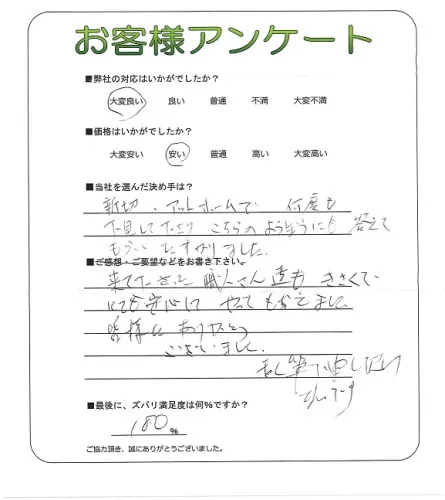 お客様アンケート
■弊社の対応はいかがでしたか?
大変良い 良い 普通 不満 大変不満
■価格はいかがでしたか?
大変安い 安い 普通 高い 大変高い
■当社を選んだ決め手は?
親切、アットホームで 何度も
下見してたり こちらのようぼうにも 答えて
もらい たすかりました。
■ご感想・ご要望などをお書き下さい。
来て下さった 職人さん達も きさくで
安心して やってもらえました。
皆様に ありがとう
ございました。
乱筆で申し訳
ないです
■最後に、ズバリ満足度は何%ですか?
100%
ご協力頂き、誠にありがとうございました。